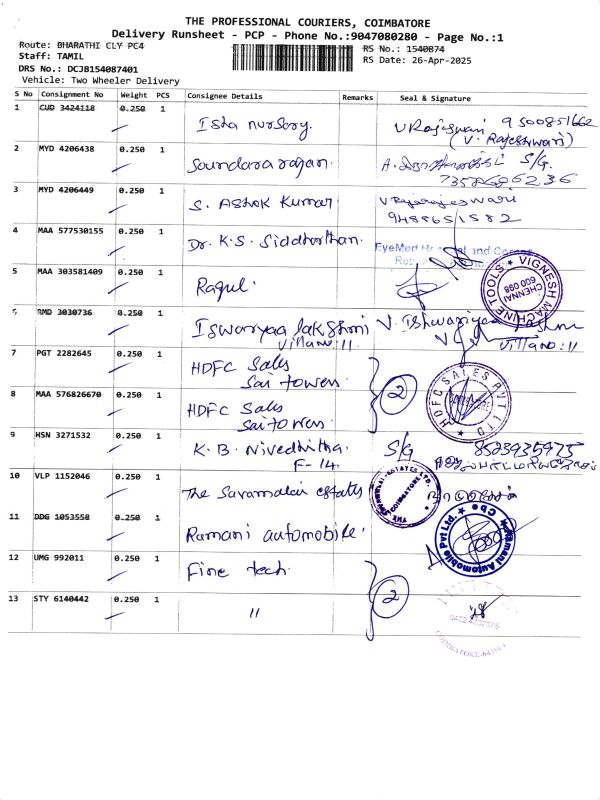 THE PROFESSIONAL COURIERS, COIMBATORE
Delivery Runsheet - PCP - Phone No.:9047080280 - Page No.:1
Route: BHARATHI CLY PC4
RS No.: 1540874
Staff: TAMIL
RS Date: 26-Apr-2025
DRS No.: DCJB154087401
Vehicle: Two Wheeler Delivery
S No Consignment No Weight PCS Consignee Details Remarks Seal & Signature
1 CUD 3424118 0.250 1 Isha nursory. V Rajeswari 9500851662
(V. Rajeshwari)
2 MYD 4206438 0.250 1 Soundararajan. S/G.
3 MYD 4206449 0.250 1 S. Ashok Kumar. V Rajarajeswari
9488651582
4 MAA 577530155 0.250 1 Dr. K.S. Siddharthan.
5 MAA 303581409 0.250 1 Ragul. VIGNESH MACHINE TOOLS
CHENNAI
600 098
6 RMD 3030736 0.250 1 Iswaryaa lakshmi
Villa no: 11. Villa no: 11
7 PGT 2282645 0.250 1 HDFC Sales
Sai towers.
2
8 MAA 576826670 0.250 1 HDFC Sales HDFC SALES PVT LTD
Sai towers
9 HSN 3271532 0.250 1 K. B. Nivedhitha. S/G 8523935975
F-14.
10 VLP 1152046 0.250 1 The Savamalai estates COIMBATORE
11 DDG 1053558 0.250 1 Ramani automobile. Ramani Automobile Pvt Ltd. Cbe
12 UMG 992011 0.250 1 Fine tech.
2
13 STY 6140442 0.250 1 "
COIMBATORE